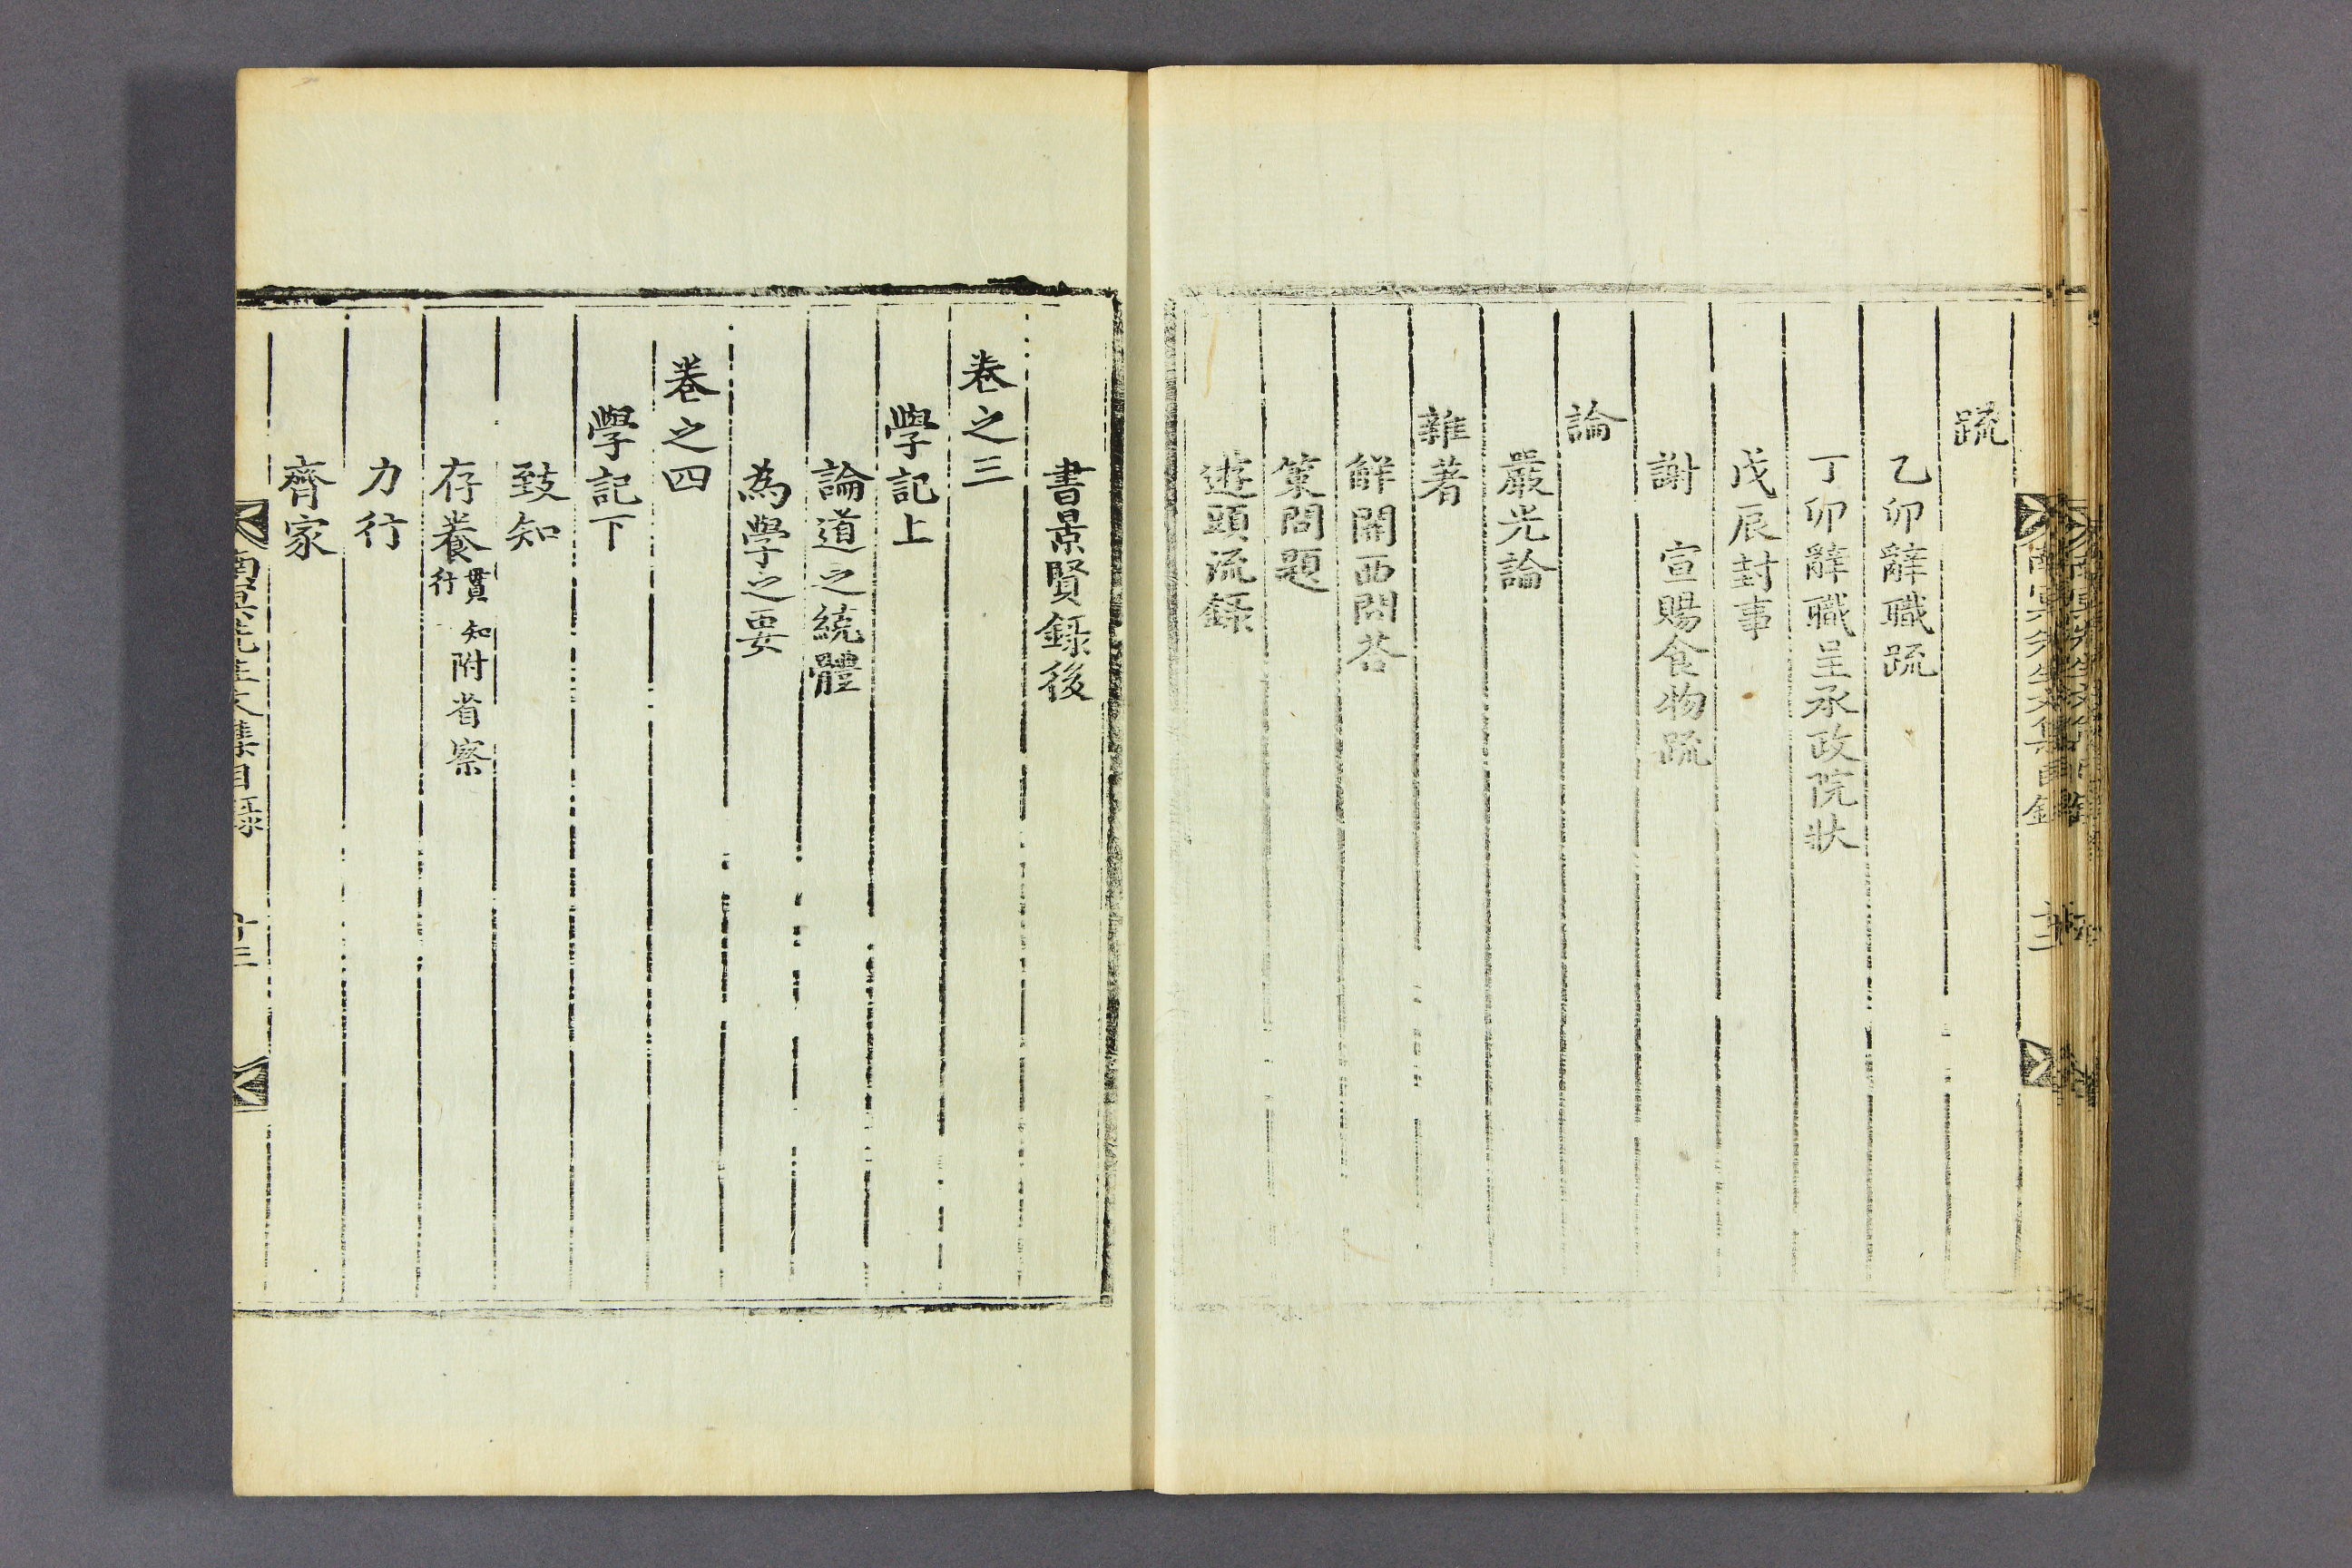 疏
乙卯辭職疏
丁卯辭職呈承政院狀
戊辰封事
謝　宣賜食物疏
論
嚴光論
雜著
解關西問答
策問題
遊頭流錄
書景賢錄後
卷之三
學記上
論道之統體
為學之要
卷之四
學記下
致知
存養 貫知行 附省察
力行
齊家
南冥先生文集目錄　十三